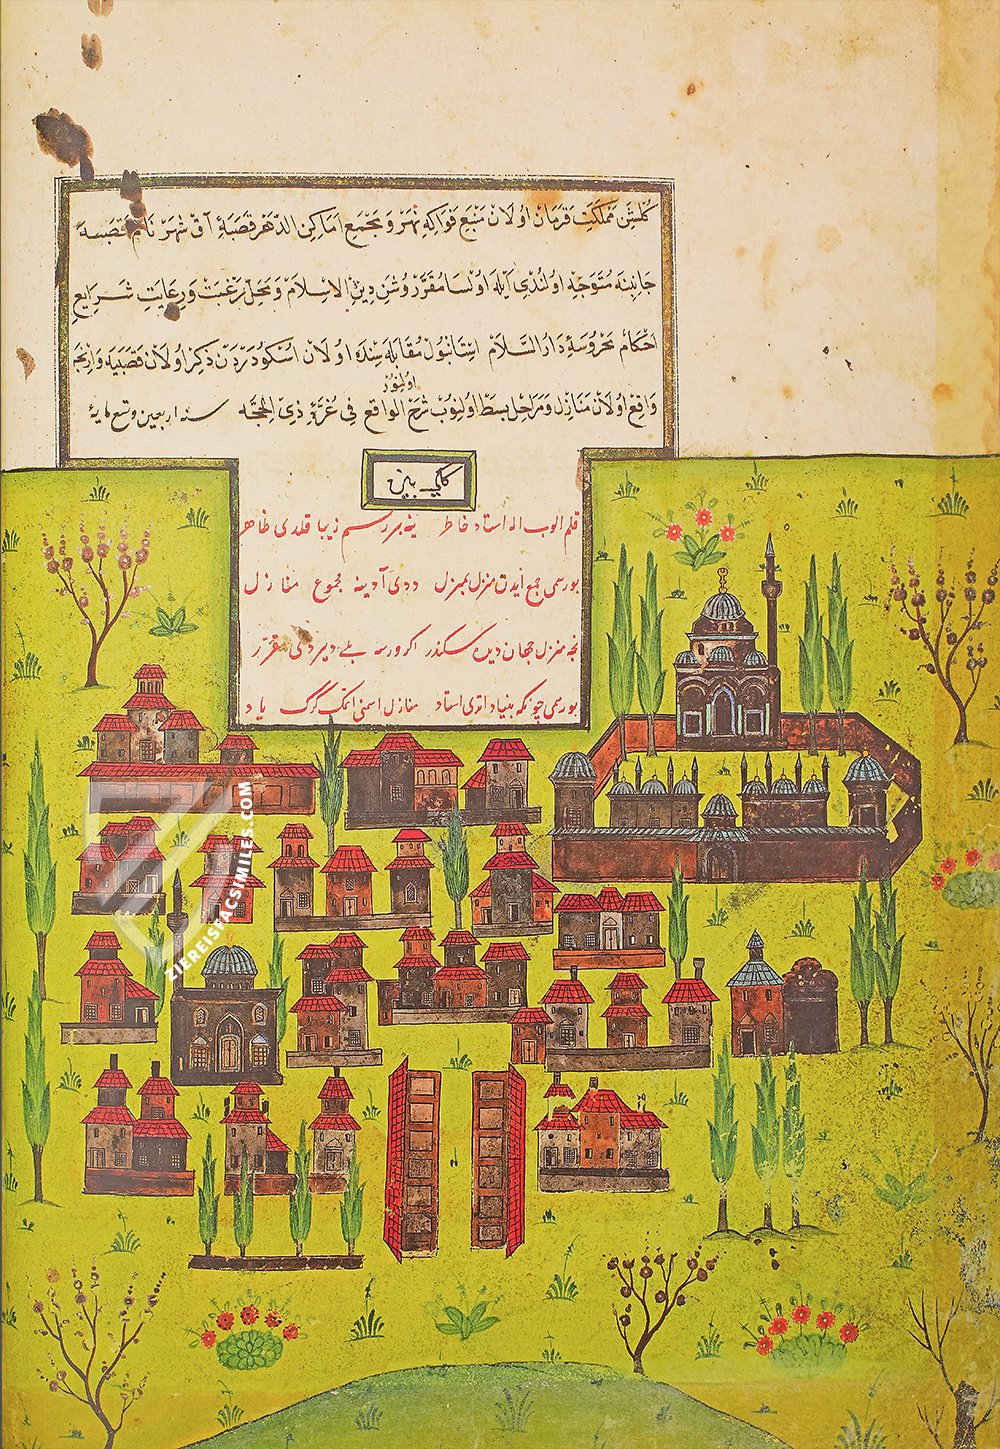 كلشن مملكت قرمان اولان منبع فواكه نهر و مجمع اماكن الدهر قصبهٔ آق شهر نام قصبه
جانبنه متوجه اولندی ایله اولسا مقرر وشن دین الاسلام و محل رغبت ورعایت شرایع
احكام محروسهٔ دار السلام استانبول مقابله سنده اولان اسكودردن ذكر اولان قصبیه وارنجه
واقع اولان منازل و مراحل بسط اولنوب شرح اولنور الواقع فی غرّة ذی الحجّه سنه اربعین و تسعمایة
قلم الوب اله استاد خاطر
بو رسمی جمع ایدن منزل بمنزل ددی آدینه مجموع منازل
نجه منزل جهان دیده سكندر اكر ورسه بلے دیردی مقرّر
بو رسمی چونكه بنیاد اتدی استاد منازل اسمنی اتمك كرك یاد
ZIEREISFACSIMILES.COM